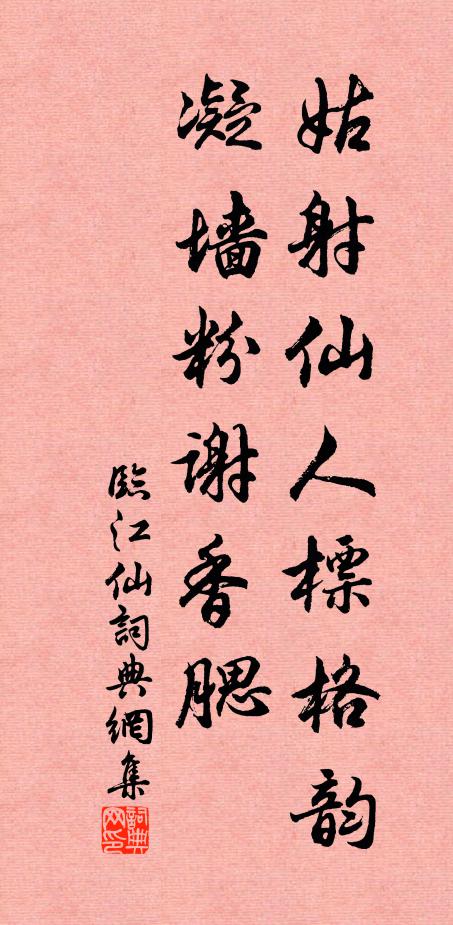 姑射仙人標格韵
凝墙粉谢香腮
臨江仙詞典網集
詞典网印